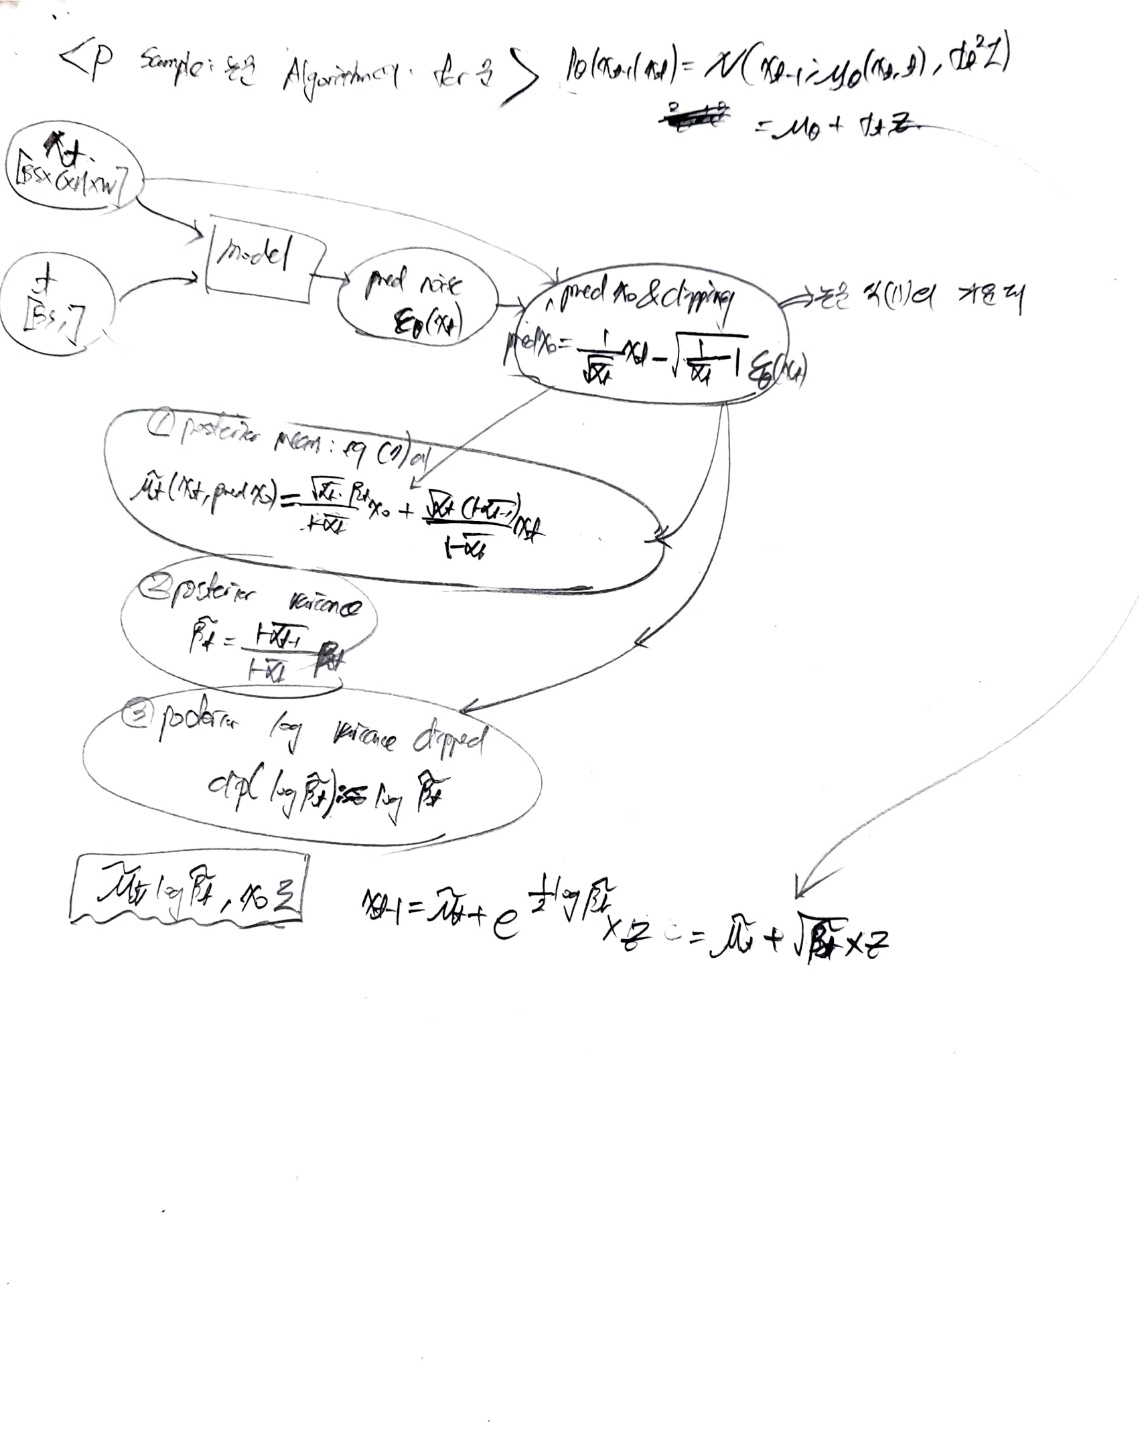 <P Sample: 논문 Algorithm 2. for 문> pθ(xt-1|xt) = N(xt-1; μθ(xt, t), σt²I)
= μθ + σt z
xt
[BS×C×H×W]
t
[BS,]
model
pred noise
εθ(xt)
pred x0 & clipping
pred x0 = 1/√ᾱt xt - √(1/ᾱt - 1) εθ(xt)
→ 논문 식
① posterior mean: eq (7)
μ̃t(xt, pred x0) = √ᾱt-1 βt / 1-ᾱt x0 + √αt (1-ᾱt-1) / 1-ᾱt xt
② posterior variance
β̃t = 1-ᾱt-1 / 1-ᾱt βt
③ posterior log variance clipped
clip( log β̃t) log β̃t
μ̃t log β̃t, x0
xt-1 = μ̃t + e^½ log β̃t × z = μ̃t + √β̃t × z